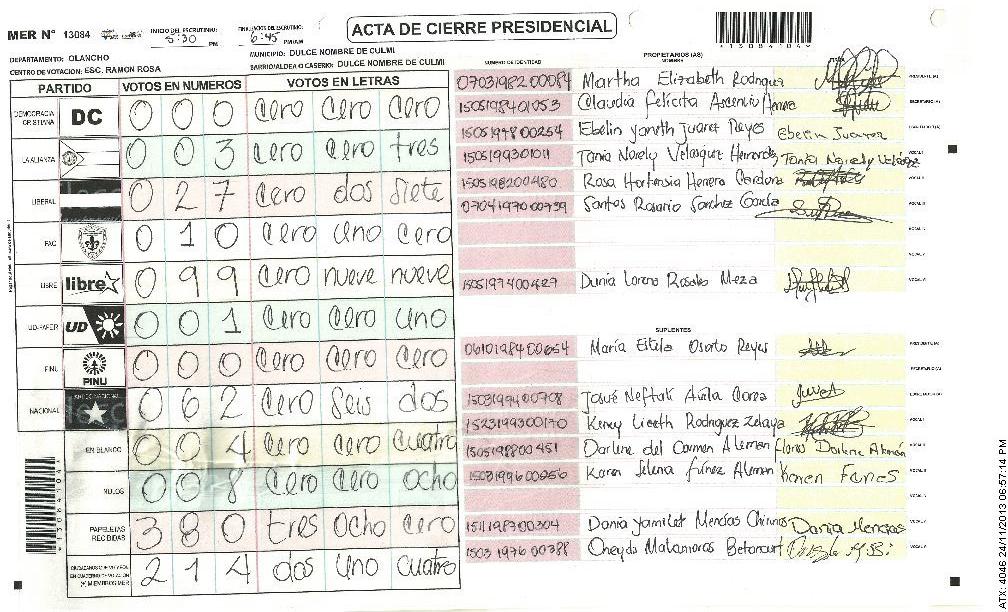 ACTA DE CIERRE PRESIDENCIAL
*13084104*
MER N° 13084
INICIO DEL ESCRUTINIO: 5:30 PM
FINALIZACION DEL ESCRUTINIO: 6:45 PM/AM
DEPARTAMENTO: OLANCHO
MUNICIPIO: DULCE NOMBRE DE CULMI
CENTRO DE VOTACION: ESC. RAMON ROSA
BARRIO/ALDEA O CASERIO: DULCE NOMBRE DE CULMI
PARTIDO VOTOS EN NUMEROS VOTOS EN LETRAS
DEMOCRACIA CRISTIANA DC 0 0 0 Cero Cero Cero
LA ALIANZA 0 0 3 Cero Cero tres
LIBERAL 0 2 7 Cero dos Siete
PAC 0 1 0 Cero Uno Cero
LIBRE libre 0 9 9 Cero nueve nueve
UD-FAPER UD 0 0 1 Cero Cero Uno
PINU PINU 0 0 0 Cero Cero Cero
NACIONAL 0 6 2 Cero Seis dos
EN BLANCO 0 0 4 Cero Cero Cuatro
NULOS 0 0 8 Cero Cero Ocho
PAPELETAS RECIBIDAS 3 8 0 tres Ocho Cero
2 1 4 dos Uno Cuatro
*13084104*
NUMERO DE IDENTIDAD
PROPIETARIOS (AS)
NOMBRE
0703198200084 Martha Elizabeth Rodriguez PRESIDENTE (A)
1505198401053 Claudia Felicita Asencio Herrera SECRETARIO (A)
1505197800254 Ebelin Yaneth Juarez Reyes Ebelin Juarez ESCRUTADOR (A)
1505199301011 Tania Narely Velasquez Hernandez Tania Narely Velasquez VOCAL I
1505198200480 Rosa Hortensia Herrera Cardona VOCAL II
0704197000739 Santos Rosario Sanchez Garcia VOCAL III
VOCAL IV
VOCAL V
1505197400427 Dunia Lorena Rosales Meza VOCAL VI
SUPLENTES
0610198400654 María Estela Osorto Reyes PRESIDENTE (A)
SECRETARIO (A)
1503199400708 Josué Neftalí Avila ESCRUTADOR (A)
1523199300170 Kency Lizeth Rodriguez Zelaya VOCAL I
1505198800451 Darlene del Carmen Aleman Flores Darlene Alemán VOCAL II
1503199600256 Karen Selena Fúnez Aleman Karen Funes VOCAL III
VOCAL IV
1511198300304 Dania Yamilet Mencias Chirinos Dania Mencias VOCAL V
1503197600388 Oneyda Matamoros Betancurt VOCAL VI
ATX: 4046 24/11/2013 06:57:14 PM